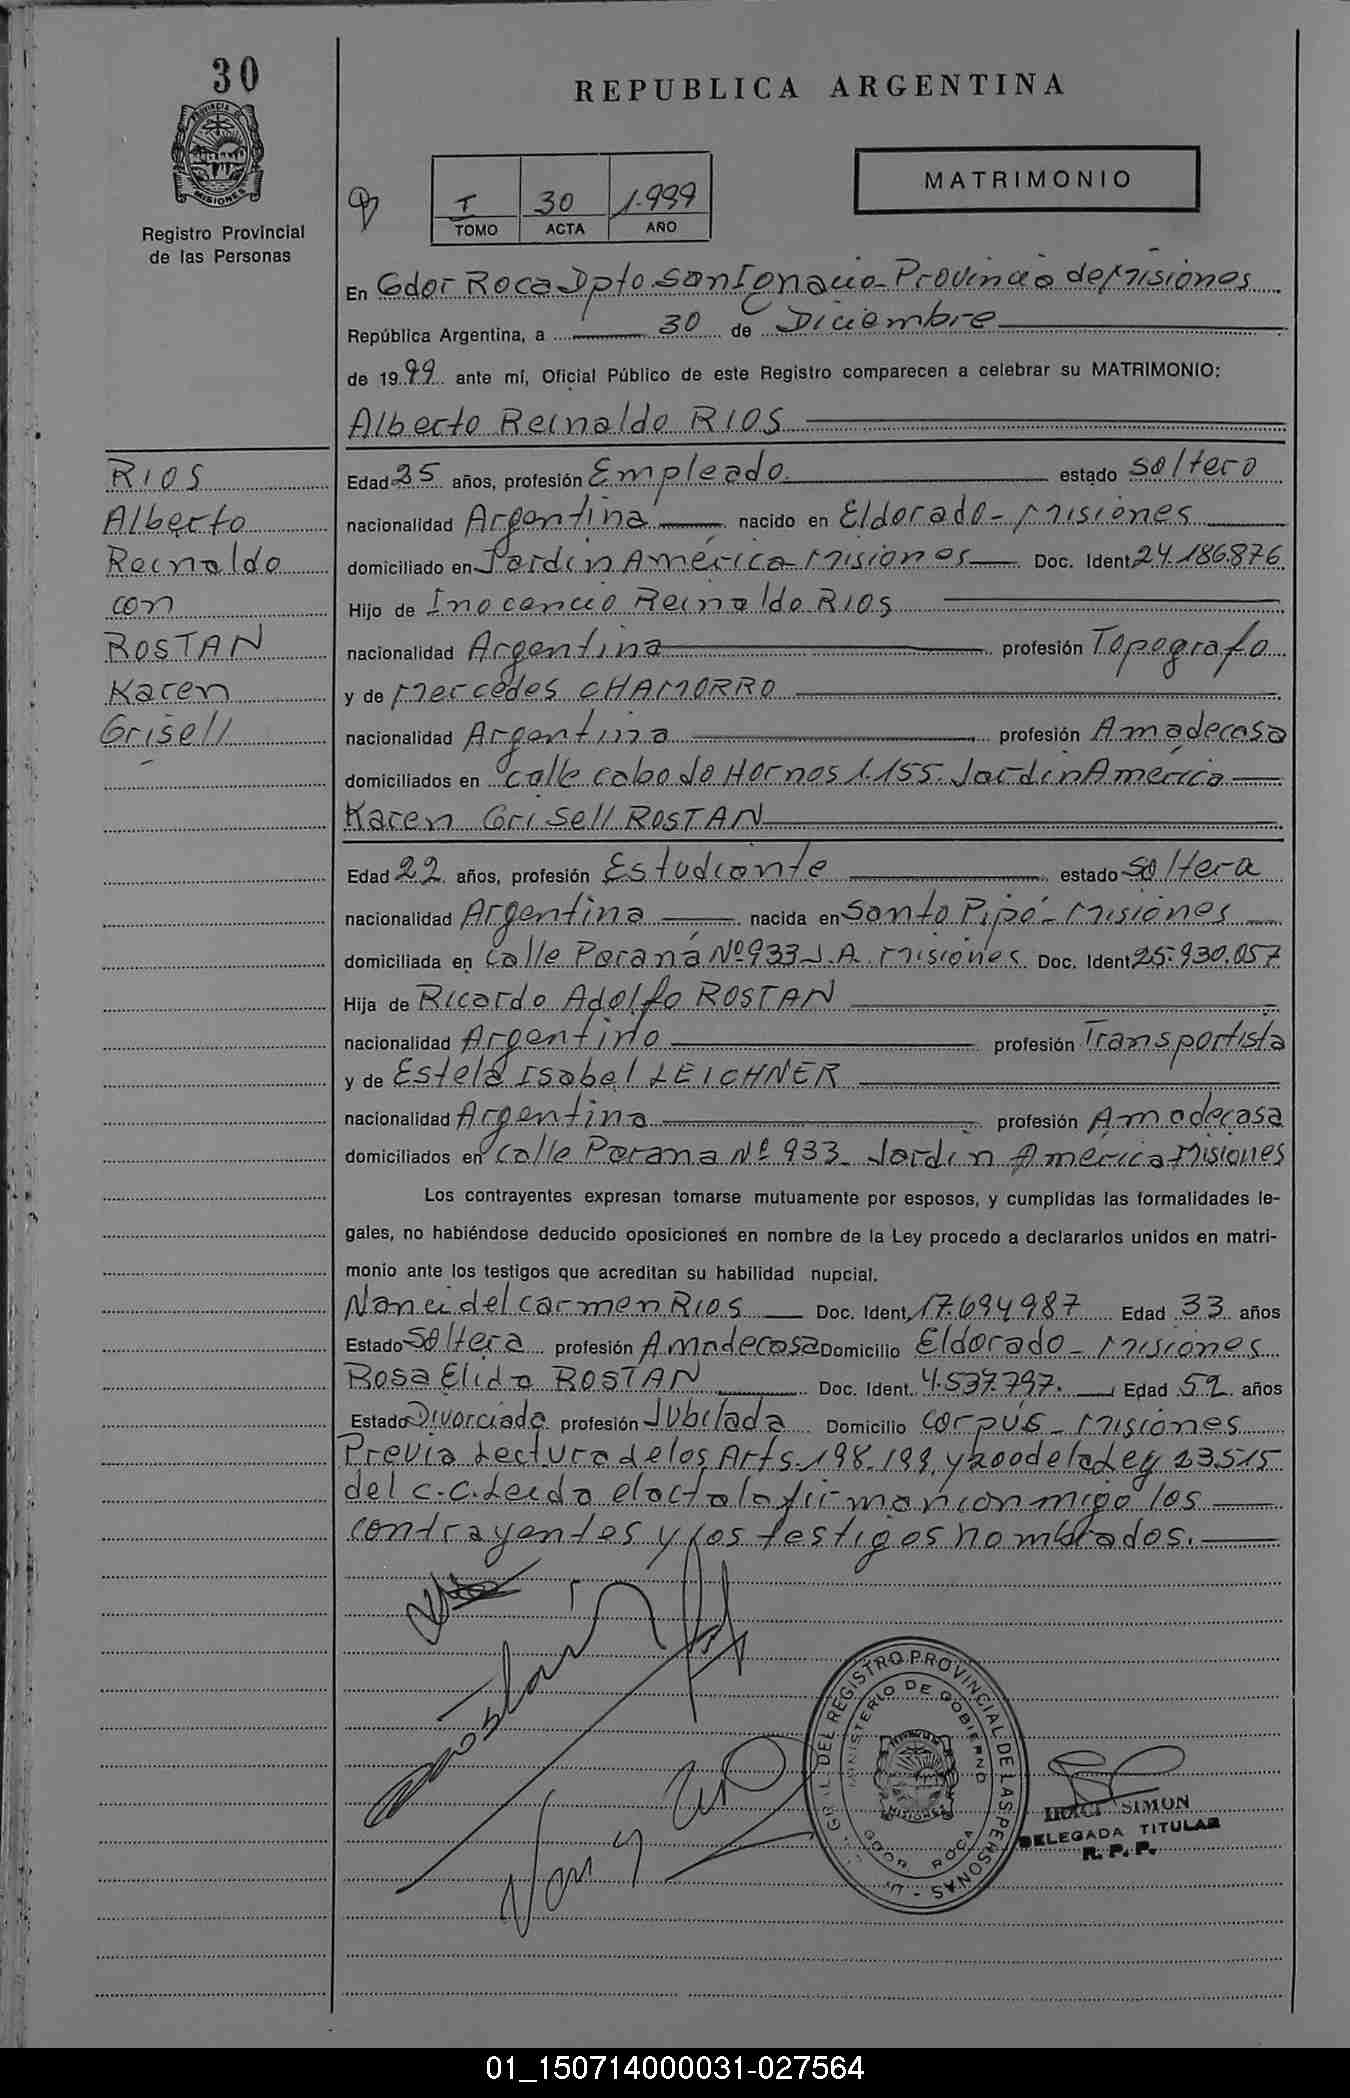 30
PROVINCIA DE
MISIONES
Registro Provincial
de las Personas
REPUBLICA ARGENTINA
MATRIMONIO
I 30 1.999
TOMO ACTA AÑO
En Gdor Roca Dpto San Ignacio - Provincia de Misiones
República Argentina, a 30 de Diciembre
de 1999 ante mí, Oficial Público de este Registro comparecen a celebrar su MATRIMONIO:
Alberto Reinaldo RIOS
RIOS
Alberto
Reinaldo
con
ROSTAN
Karen
Grisell
Edad 25 años, profesión Empleado estado soltero
nacionalidad Argentina nacido en Eldorado - Misiones
domiciliado en Jardin América - Misiones Doc. Ident 24.186.876
Hijo de Inocencio Reinaldo RIOS
nacionalidad Argentina profesión Topografo
y de Mercedes CHAMORRO
nacionalidad Argentina profesión Amadecasa
domiciliados en calle cabo de Hornos 1.155. Jardin America
Karen Grisell ROSTAN
Edad 22 años, profesión Estudiante estado soltera
nacionalidad Argentina nacida en Santo Pipó - Misiones
domiciliada en Calle Paraná Nº 933 J.A. Misiones Doc. Ident 25.930.057
Hija de Ricardo Adolfo ROSTAN
nacionalidad Argentino profesión Transportista
y de Estela Isabel LEICHNER
nacionalidad Argentina profesión Amadecasa
domiciliados en Calle Parana Nº 933 - Jardin América Misiones
Los contrayentes expresan tomarse mutuamente por esposos, y cumplidas las formalidades le-
gales, no habiéndose deducido oposiciones en nombre de la Ley procedo a declararlos unidos en matri-
monio ante los testigos que acreditan su habilidad nupcial.
Nanci del Carmen RIOS Doc. Ident. 17.694.987 Edad 33 años
Estado Soltera profesión Amadecasa Domicilio Eldorado - Misiones
Rosa Elida ROSTAN Doc. Ident. 4.537.797. Edad 52 años
Estado Divorciada profesión Jubilada Domicilio Corpus - Misiones
Previa Lectura de los Arts. 198. 199. y 200 de la Ley 23.515
del C.C. Leida el acta la firman conmigo los
contrayentes y los testigos nombrados.
DEL REGISTRO PROVINCIAL DE LAS PERSONAS
MINISTERIO DE GOBIERNO
MISIONES
GDOR ROCA
SIMON
DELEGADA TITULAR
R. P. P.
01_150714000031-027564